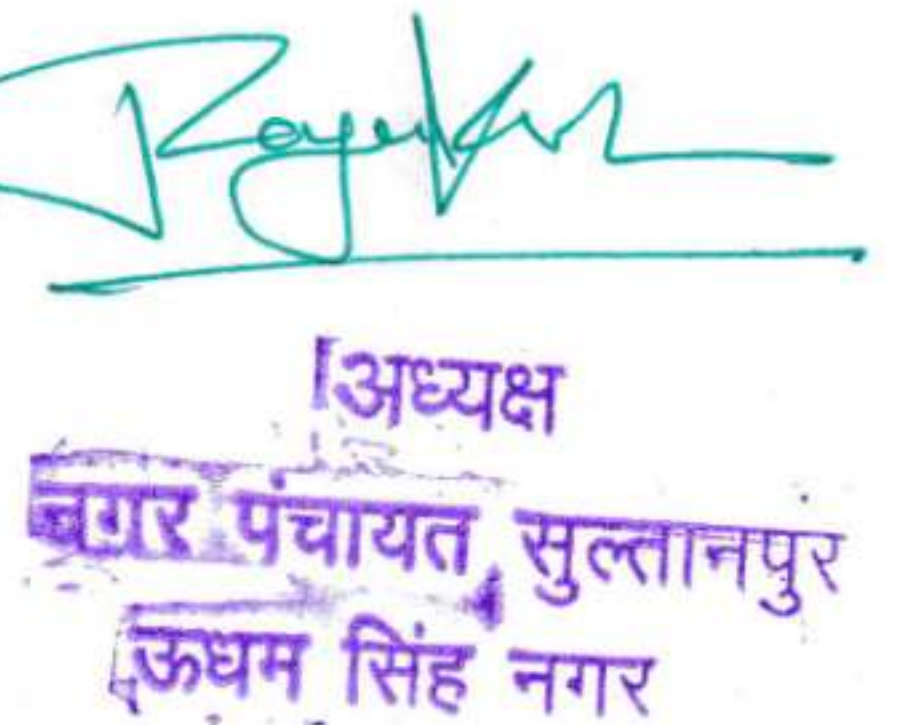 अध्यक्ष
नगर पंचायत सुल्तानपुर
ऊधम सिंह नगर